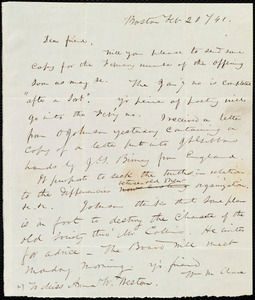 Boston Feb 20 /41.
Dear friend,
Will you please to send some
copy for the February number of the offering
soon as may be. The Jan'y no is complete
"after a sort." Yr piece of poetry will
go into the Feb'y no. I received a letter
from Johnson yesterday containing a
copy of a letter put into J S Gibbons
hands by J. G. Birney from England
& purport to seek the truth in relation
to the Differences between old & new organization,
&c. &c. Johnson thinks that some plan
is on foot to destroy the Character of the
old Society thro' Mr Collins. He writes
for advice - The Board will meet
Monday morning - yr friend
Wm M. Chace
To Miss Anne W. Weston.